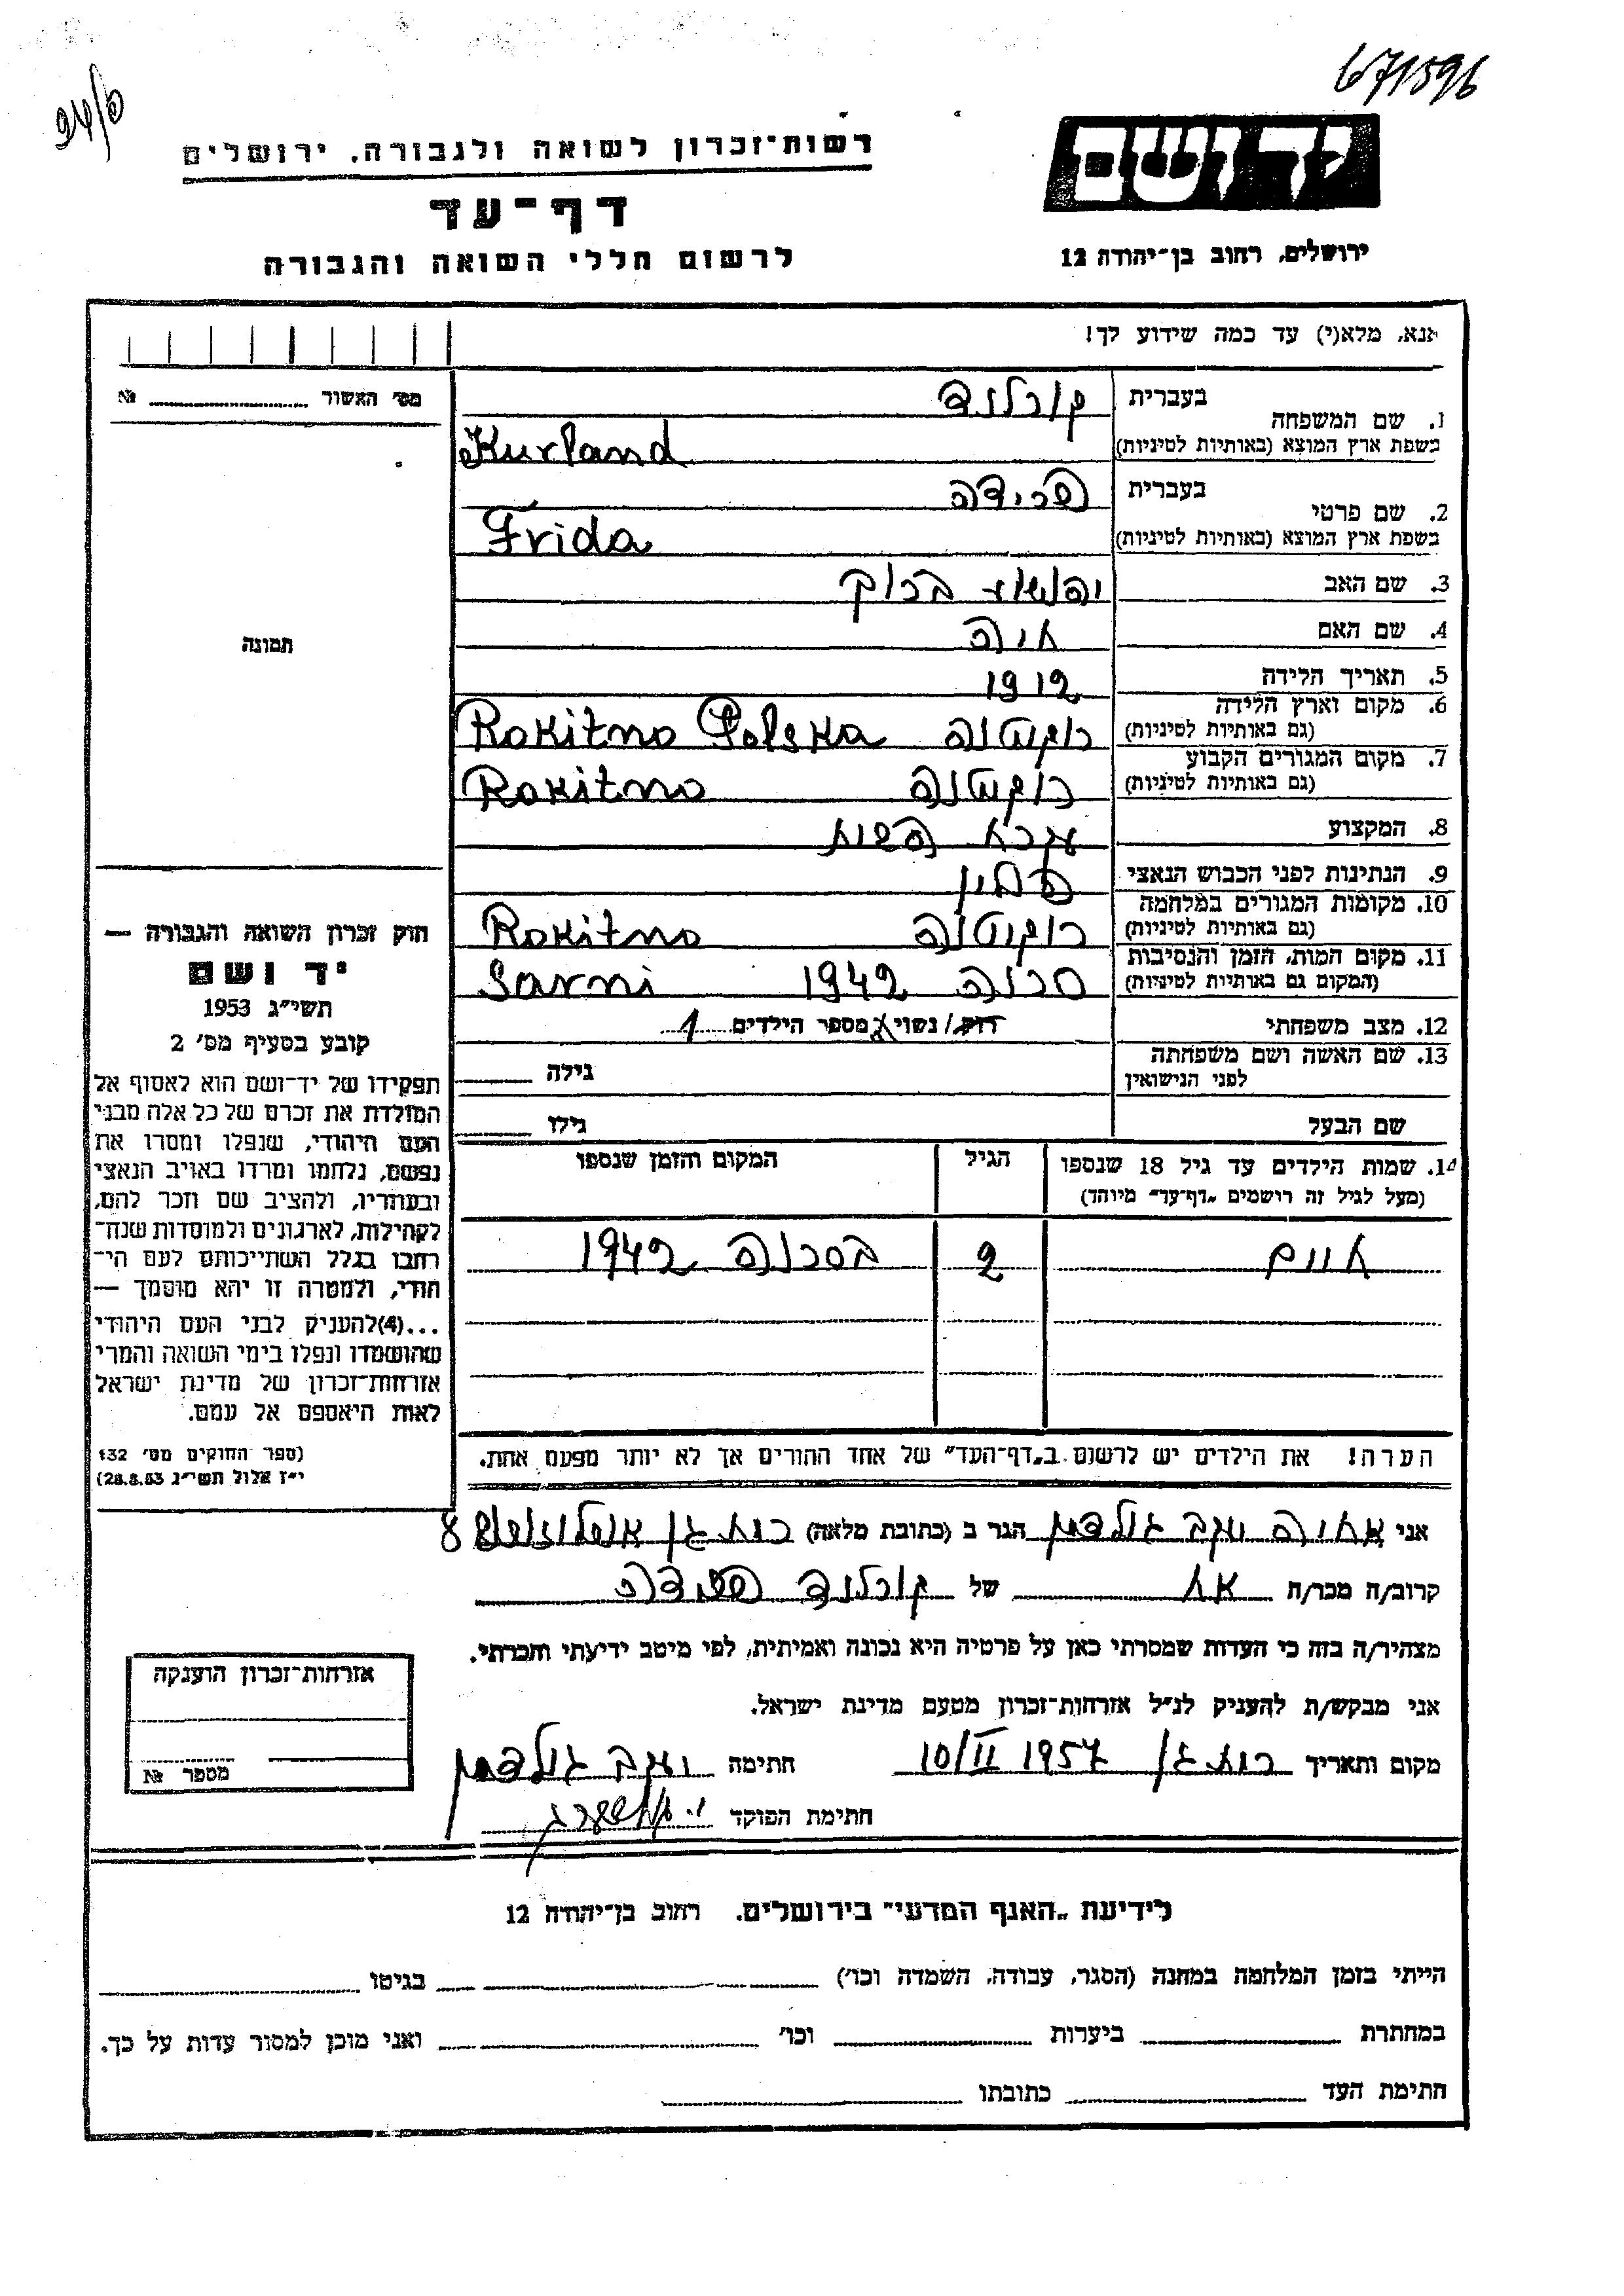 671596
24/6
רשות־זכרון לשואה ולגבורה, ירושלים
דף־עד
לרשום חללי השואה והגבורה
יד ושם
ירושלים, רחוב בן־יהודה 12
אנא, מלא(י) עד כמה שידוע לך!
מס׳ האשור № 
1. שם המשפחה בעברית קורלנד
בשפת ארץ המוצא (באותיות לטיניות) Kurland
2. שם פרטי בעברית פרידה
בשפת ארץ המוצא (באותיות לטיניות) Frida
3. שם האב יהושע ברוך
4. שם האם חיה
5. תאריך הלידה 1912
6. מקום וארץ הלידה (גם באותיות לטיניות) רוקיטנה Rokitno Polska
7. מקום המגורים הקבוע (גם באותיות לטיניות) רוקיטנה Rokitno
8. המקצוע עקרת הבית
9. הנתינות לפני הכבוש הנאצי פולין
10. מקומות המגורים במלחמה (גם באותיות לטיניות) רוקיטנה Rokitno
11. מקום המות, הזמן והנסיבות (המקום גם באותיות לטיניות) סרנה 1942 Sarni
12. מצב משפחתי רוק/נשוי מספר הילדים 1
13. שם האשה ושם משפחתה לפני הנישואין גילה
שם הבעל גילו
14. שמות הילדים עד גיל 18 שנספו הגיל המקום והזמן שנספו
(מעל לגיל זה רושמים „דף־עד״ מיוחד)
חיים 2 בסרנה 1942
הערה! את הילדים יש לרשום ב„דף־העד״ של אחד ההורים אך לא יותר מפעם אחת.
תמונה
חוק זכרון השואה והגבורה —
יד ושם
תשי״ג 1953
קובע בסעיף מס׳ 2
תפקידו של יד־ושם הוא לאסוף אל
המולדת את זכרם של כל אלה מבני
העם היהודי, שנפלו ומסרו את
נפשם, נלחמו ומרדו באויב הנאצי
ובעוזריו, ולהציב שם וזכר להם,
לקהילות, לארגונים ולמוסדות שנח־
רבו בגלל השתייכותם לעם הי־
הודי, ולמטרה זו יהא מוסמך —
...(4)להעניק לבני העם היהודי
שהושמדו ונפלו בימי השואה והמרי
אזרחות־זכרון של מדינת ישראל
לאות היאספם אל עמם.
(ספר החוקים מס׳ 132
י״ז אלול תשי״ג 28.8.53)
אני יעקב גולדמן הגר ב (כתובת מלאה) רמת גן 88
קרוב/ה מכר/ה אח של קורלנד פרידה
מצהיר/ה בזה כי העדות שמסרתי כאן על פרטיה היא נכונה ואמיתית, לפי מיטב ידיעתי והכרתי.
אני מבקש/ת להעניק לנ״ל אזרחות־זכרון מטעם מדינת ישראל.
מקום ותאריך רמת גן 10/II 1957 חתימה יעקב גולדמן
חתימת הפוקד
אזרחות־זכרון הוענקה
מספר №
לידיעת „האגף המדעי״ בירושלים. רחוב בן־יהודה 12
הייתי בזמן המלחמה במחנה (הסגר, עבודה, השמדה וכו׳) בגיטו
במחתרת ביערות וכו׳ ואני מוכן למסור עדות על כך.
חתימת העד כתובתו